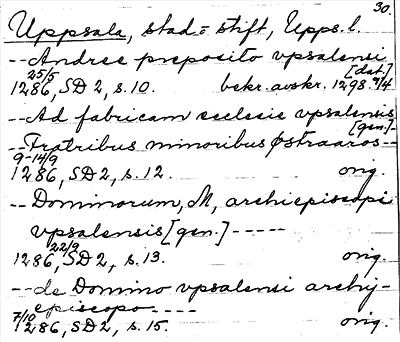 30.
Uppsala, stad o stift, Upps. l.
-- Andree preposito vpsalensi
[dat.]
25/5
1286, SD 2, s. 10. bekr. avskr. 1298 4/4
-- Ad fabricam ecclesie vpsalensis
[gen.] -
-- Fratribus minoribus Østraaros --
9-14/9
1286, SD 2, s. 12. orig.
-- Dominorum, M, archiepiscopi
vpsalensis [gen.] -----
22/9
1286, SD 2, s. 13. orig.
-- de Domino vpsalensi archi-
episcopo ----
7/10
1286, SD 2, s. 15. orig.